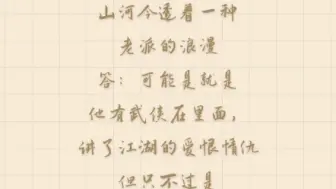 山河令透着一种
老派的浪漫
答：可能是就是
他有武侠在里面，
讲了江湖的爱恨情仇
但只不过是